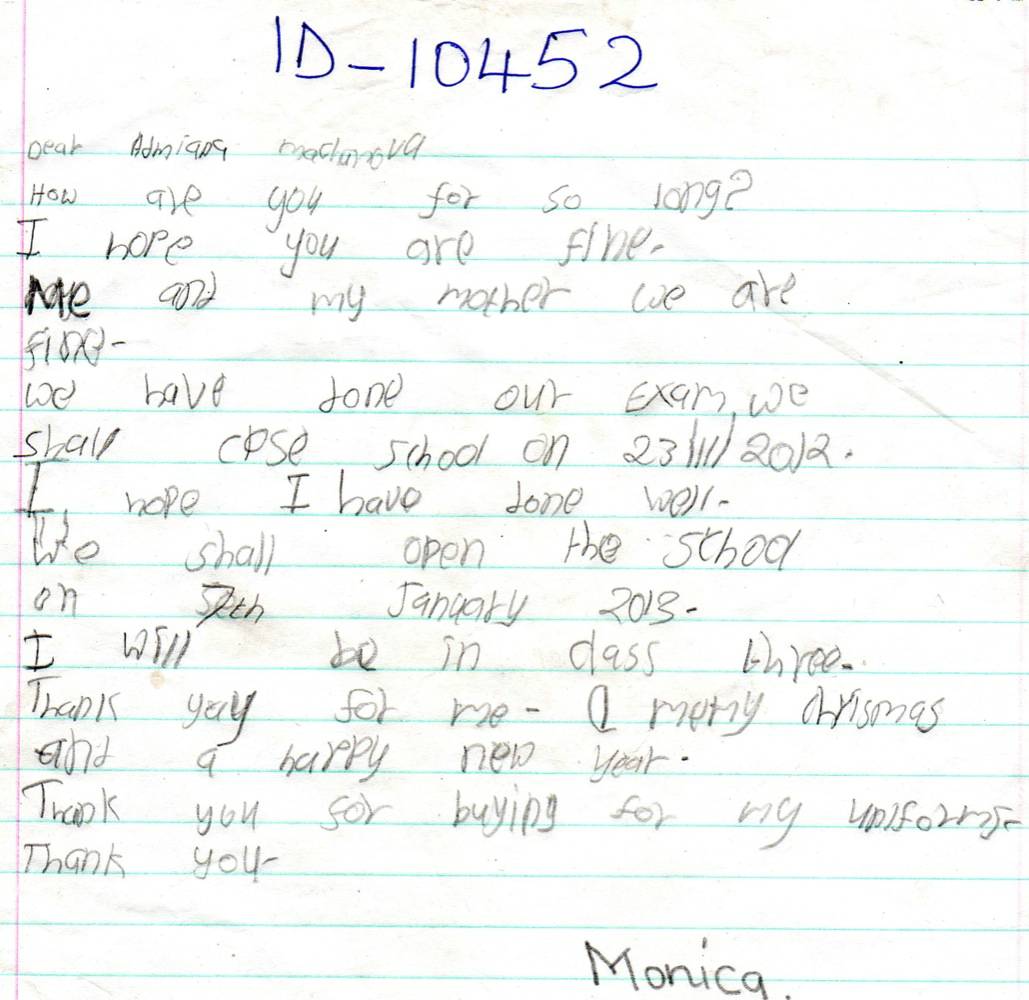 ID-10452
Dear Admiana
How are you for so long?
I hope you are fine.
Me and my mother we are
fine.
we have done our Exam, we
shall close school on 23/11/2012.
I hope I have done well.
We shall open the school
on January 2013.
I will be in class three.
Thank yoy for me. A merry chrismas
and a happy new year.
Thank you for buying for my uniforms.
Thank you.
Monica.